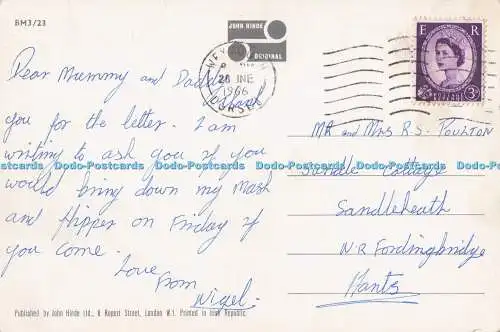 BM3/23
JOHN HINDE
ORIGINAL
28 JNE
1966
DORSET
E R
3D
Dear Mummy and Dadd
thank
you for the letter. I am
writing to ask you if you
would bring down my Mask
and Flipper on Friday if
you come.
Love
from
Nigel.
MR and MRS R.S. POULTON
Sandle Cottage
Sandleheath
N.R Fordingbridge
Hants
Docs-Postcards Docs-Postcards Docs-Postcards Docs-Postcards
Published by John Hinde Ltd., 6 Rupert Street, London W.1. Printed in Irish Republic.